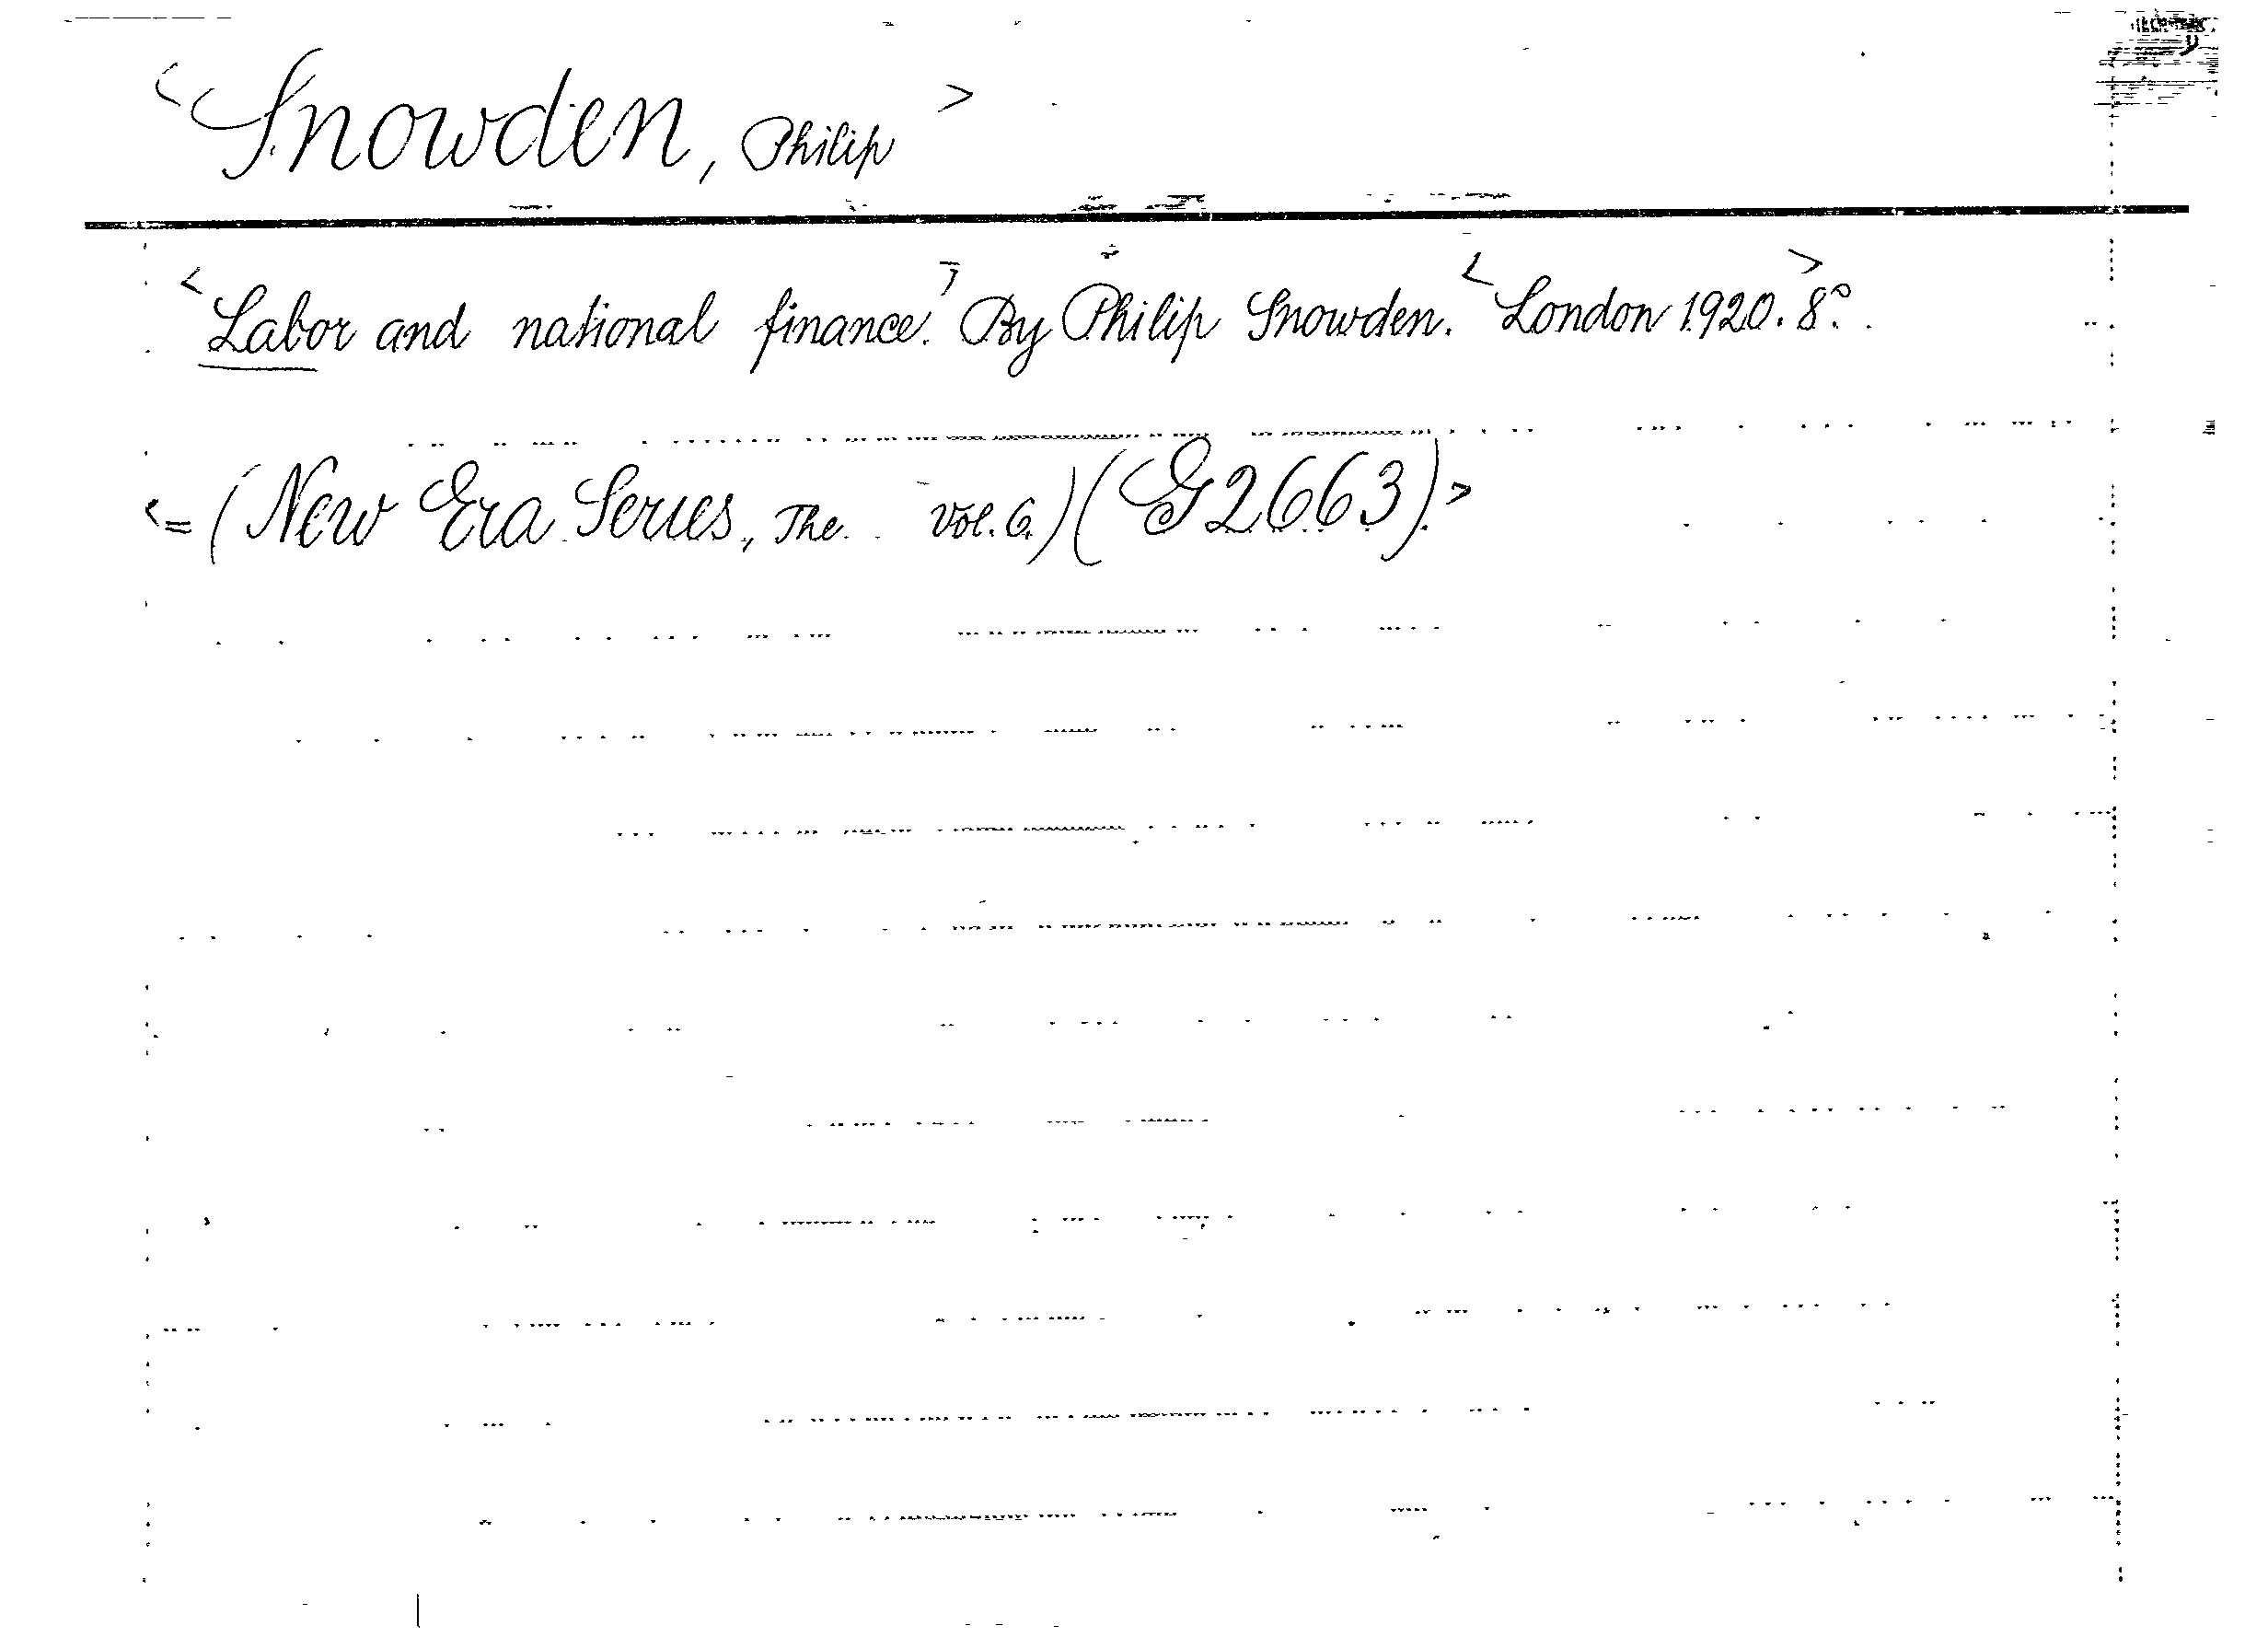 <Snowden, Philip>
<Labor and national finance.> By Philip Snowden. <London 1920.> 8°.
<= (New Era Series, The. Vol. 6.) (G 2663).>